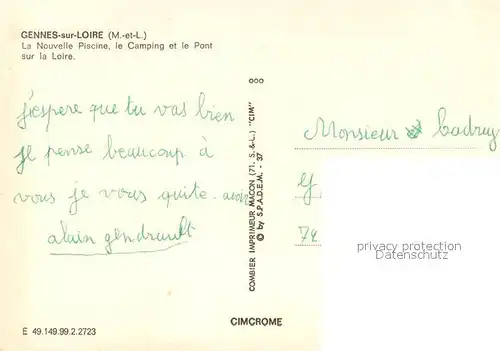 GENNES-sur-LOIRE (M.-et-L.)
La Nouvelle Piscine, le Camping et le Pont
sur la Loire.
j'espere que tu vas bien
je pense beaucoup à
vous je vous quite
alain gendrault
E 49.149.99.2.2723
COMBIER IMPRIMEUR MACON (71. S.-&-L.) "CIM"
© by S.P.A.D.E.M. - 37
CIMCROME
Monsieur Cadruy
74
privacy protection
Datenschutz